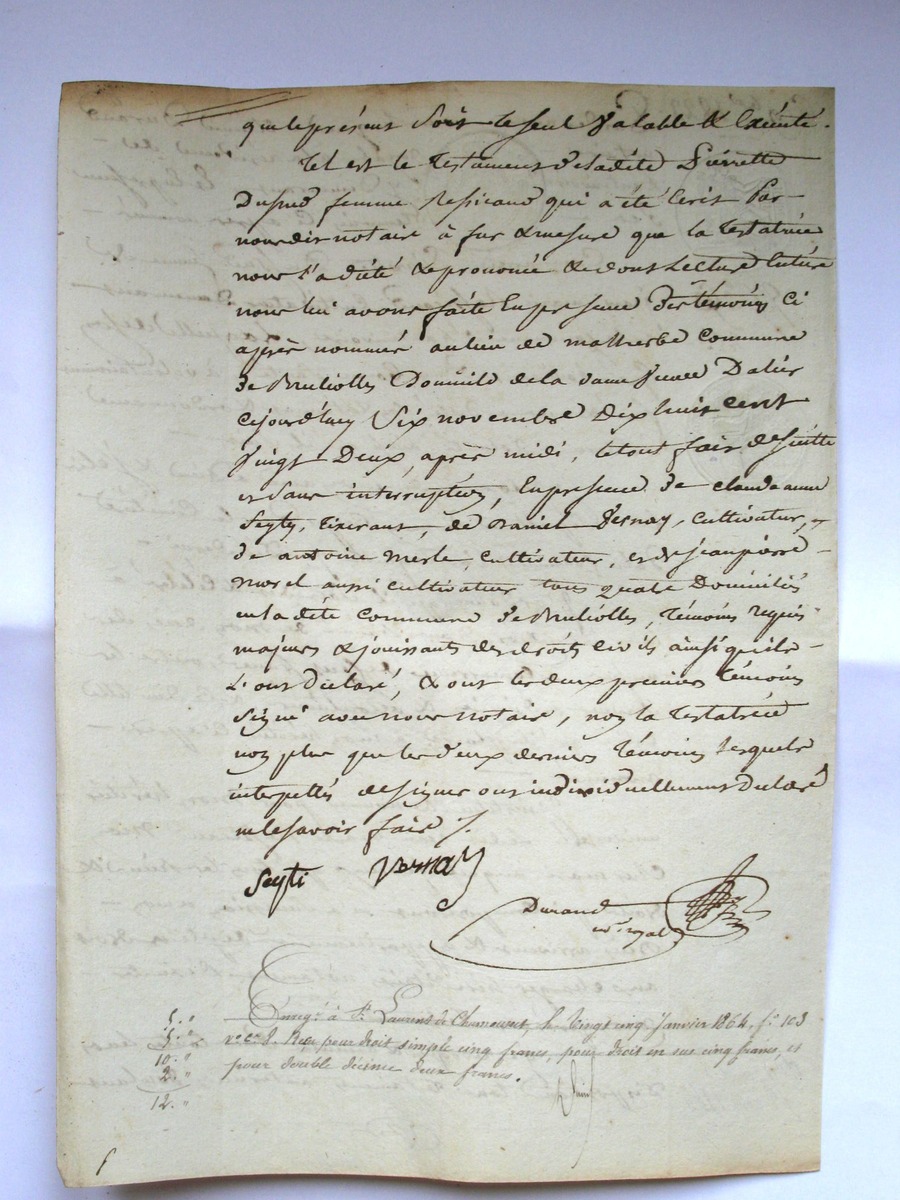 que le présent soit le seul valable & Exécuté.
Tel est le Testament de ladite Pierrette
femme qui a été Ecrit Par
nous dit notaire à fur & mesure que la Testatrice
nous l'a dicté & prononcé & dont Lecture Entière
nous lui avons faite En presence des témoins ci
après nommés au lieu de malherbe commune
de Brullioles Domicile de la
Cejourd'huy Six novembre Dix huit cent
Vingt Deux, après midi, le tout fait de suitte
et sans interruption, En presence de claude
Seyty, tixerant, de Daniel Vernay, cultivateur,
de antoine merle, cultivateur, et de jean pierre
morel aussi cultivateur tous quatre Domiciliés
en la dite commune de Brullioles, témoins requis
majeurs & jouissants des droits civils ainsi qu'ils
L'ont declaré, & ont les deux premiers témoins
Signé avec nous notaire, non la Testatrice
non plus que les deux derniers témoins lesquels
interpellés de signer ont individuellement declaré
ne le savoir faire /.
Seyti Vernay
Durand
nre. royal
Enreg.é à St. Laurent de Chamousset, le vingt cinq Janvier 1864, f.o 103
v.o c.e 8. Reçu pour droit simple cinq francs, pour droit en sus cinq francs, et
pour double décime deux francs.
5. "
5. "
10. "
2. "
12. "